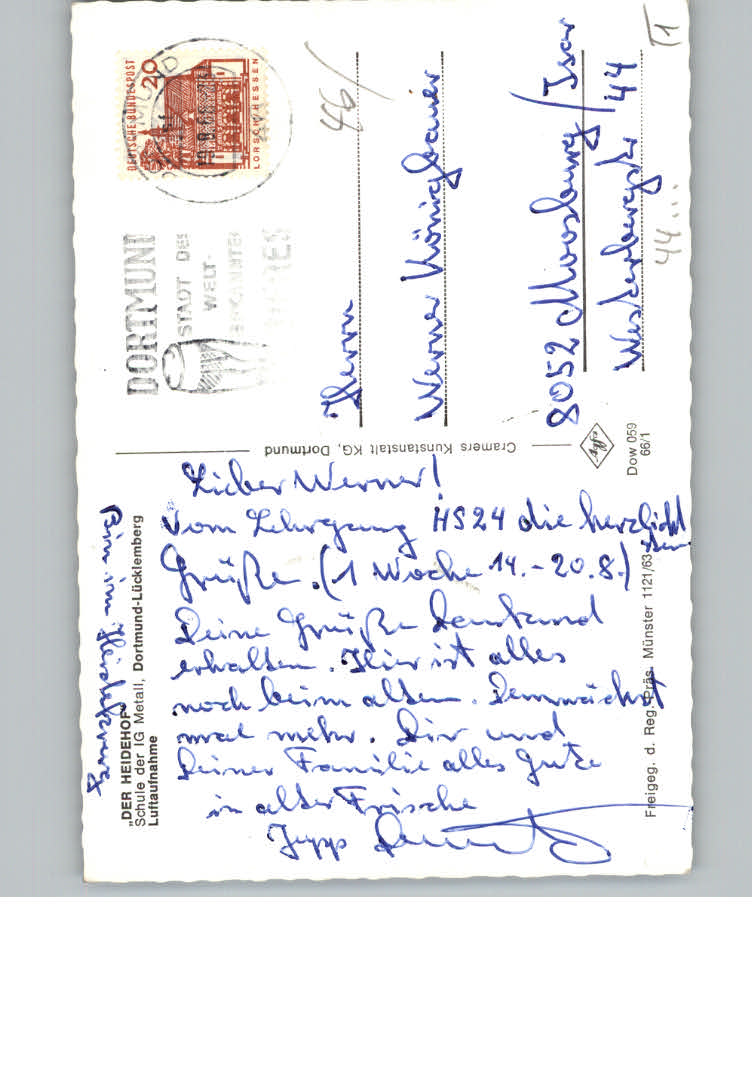 Bin im Heidekrug
„DER HEIDEHOF“
Schule der IG Metall, Dortmund-Lücklemberg
Luftaufnahme
Lieber Werner!
Vom Lehrgang HS24 die herzlichsten
Grüße. (1 Woche 14.-20.8.)
Deine Grüße dankend
erhalten. Hier ist alles
noch beim alten. Demnächst
mal mehr. Dir und
Deiner Familie alles Gute
in alter Frische
Jupp
Freigeg. d. Reg. Präs. Münster 1121/63
Cramers Kunstanstalt KG, Dortmund
Dow 059
66/1
DEUTSCHE BUNDESPOST
20
LORSCH/HESSEN
DORTMUND
STADT DES
WELT-
BIERES
46/
Herrn
Werner Königbauer
8052 Moosburg/Isar
Westerbergstr 44
44...
T1